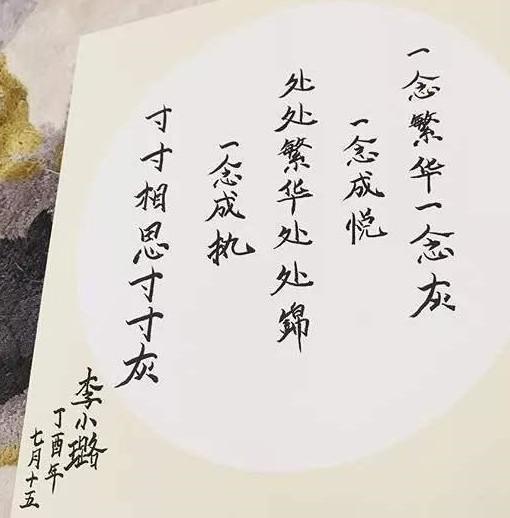 一念繁华一念灰
一念成悦
处处繁华处处錦
一念成执
寸寸相思寸寸灰
李小璐
丁酉年
七月十五